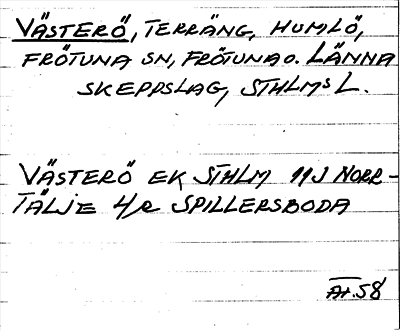 VÄSTERÖ, TERRÄNG, HUMLÖ,
FRÖTUNA SN, FRÖTUNA O. LÄNNA
SKEPPSLAG, STHLMS L.
VÄSTERÖ EK STHLM 11J NORR-
TÄLJE 4/R SPILLERSBODA
At.58